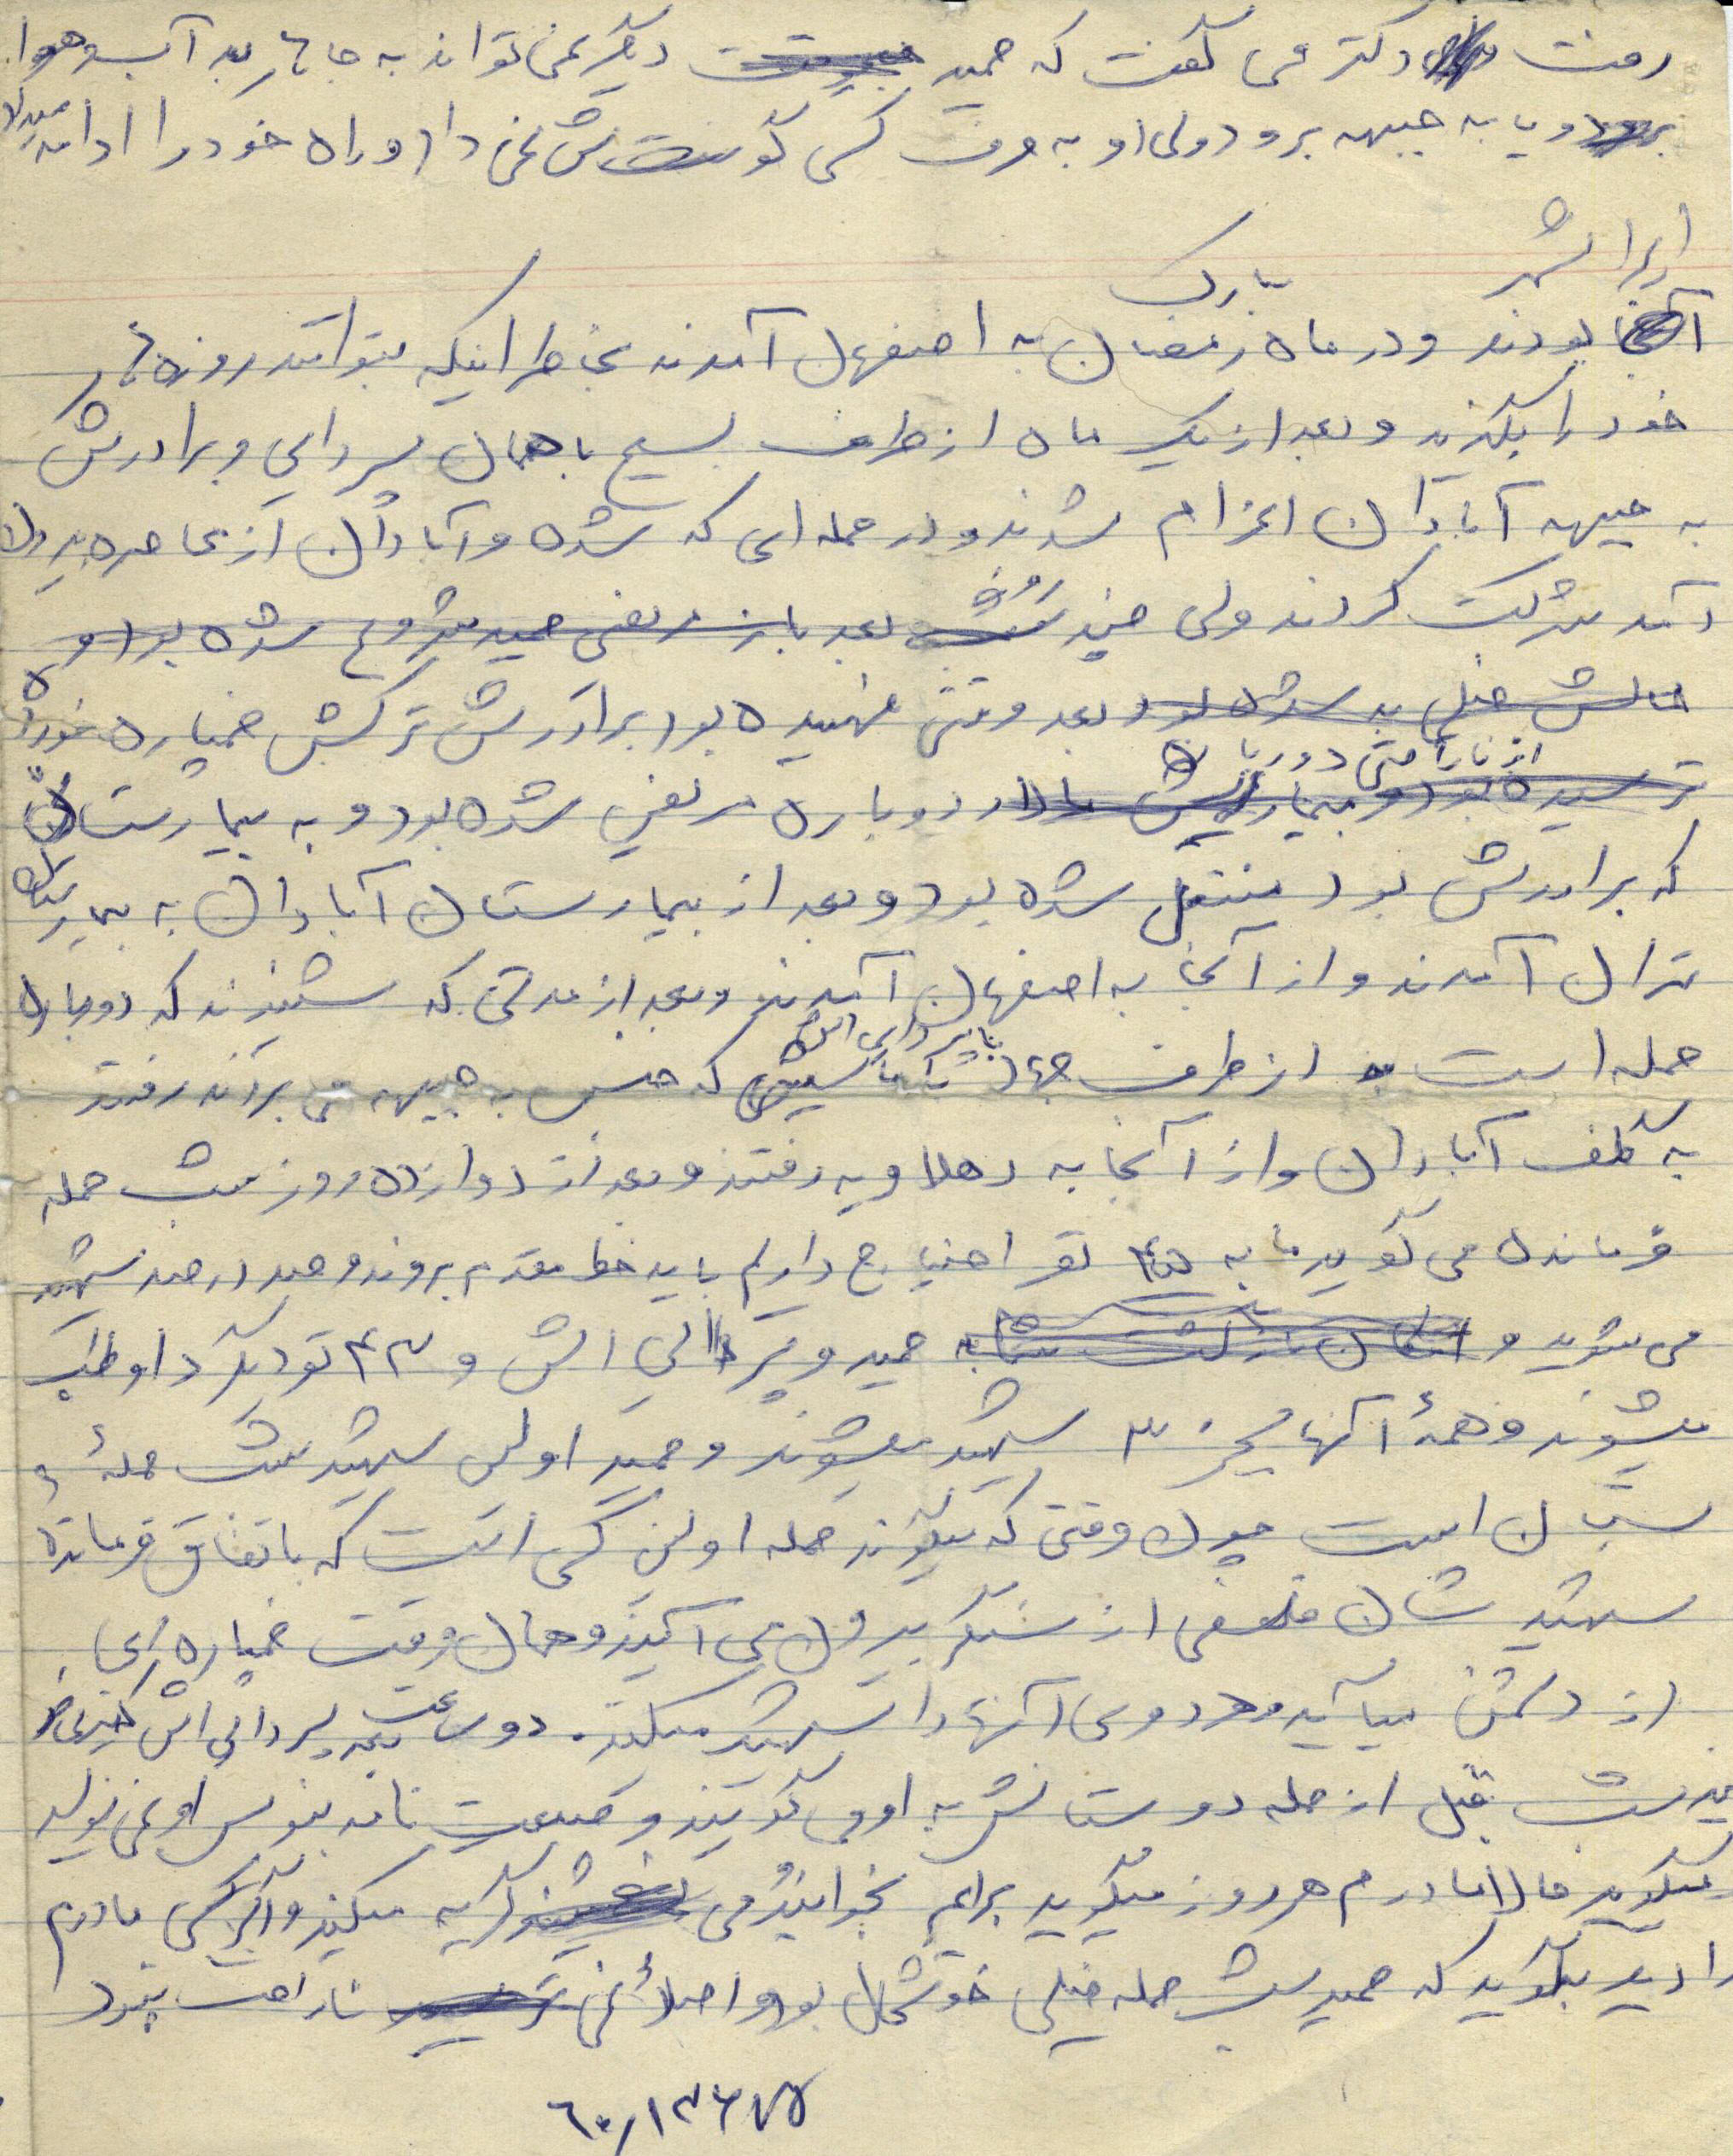 رفت دکتر می گفت که حمید دیگر نمی تواند به جاهای بد آب و هوا
برود و یا به جبهه برود ولی او به حرف کسی گوش نمی داد و راه خود را ادامه میداد
ایرانشهر
آنجا بودند و در ماه رمضان مبارک به اصفهان آمدند بخاطر اینکه بتوانند روزه های
خود را بگیرند و بعد از یک ماه از طرف بسیج با همان پسر دایی و برادرش
به جبهه آبادان اعزام شدند و در حمله ای که شده و آبادان از محاصره بیرون
آمد شرکت کردند ولی چند روز بعد باز مریضی حمید شروع شده بود و
حالش خیلی بد شده بود و بعد وقتی فهمیده بود برادرش ترکش خمپاره خورده
از ناراحتی دوباره مریض شده بود و به بیمارستان
که برادرش بود منتقل شده بود و بعد از بیمارستان آبادان به بیمارستان
تهران آمدند و از آنجا به اصفهان آمدند و بعد از مدتی که شنیدند که دوباره
حمله است از طرف جهاد با پسر دایی اش که جنس به جبهه می بردند رفتند
به کمک آبادان و از آنجا به دهلاویه رفتند و بعد از دوازده روز شب حمله
فرمانده می گوید ما به ۴۵ نفر احتیاج داریم باید خط مقدم بروند و صد در صد شهید
می شوید و حمید و پسر دایی اش و ۴۳ نفر دیگر داوطلب
میشوند و همهٔ آنها بجز ۳ شهید میشوند و حمید اولین شهید شب حملهٔ
شان است چون وقتی که میگویند حمله اولین کسی است که باتفاق فرمانده
شهیدشان از سنگر بیرون می آیند و همان وقت خمپاره ای
از دشمن میآید و هر دوی آنها را شهید میکند. دو ساعت بعد پسر دایی اش
شب قبل از حمله دوستانش به او می گویند وصیت نامه بنویس او نمی نویسد
میگوید حالا مادرم هر روز میگوید برایم بخوانید و می گریه میکند و اگر کسی مادرم
را دید بگوید که حمید شب حمله خیلی خوشحال بود و اصلاً ناراحت نبود